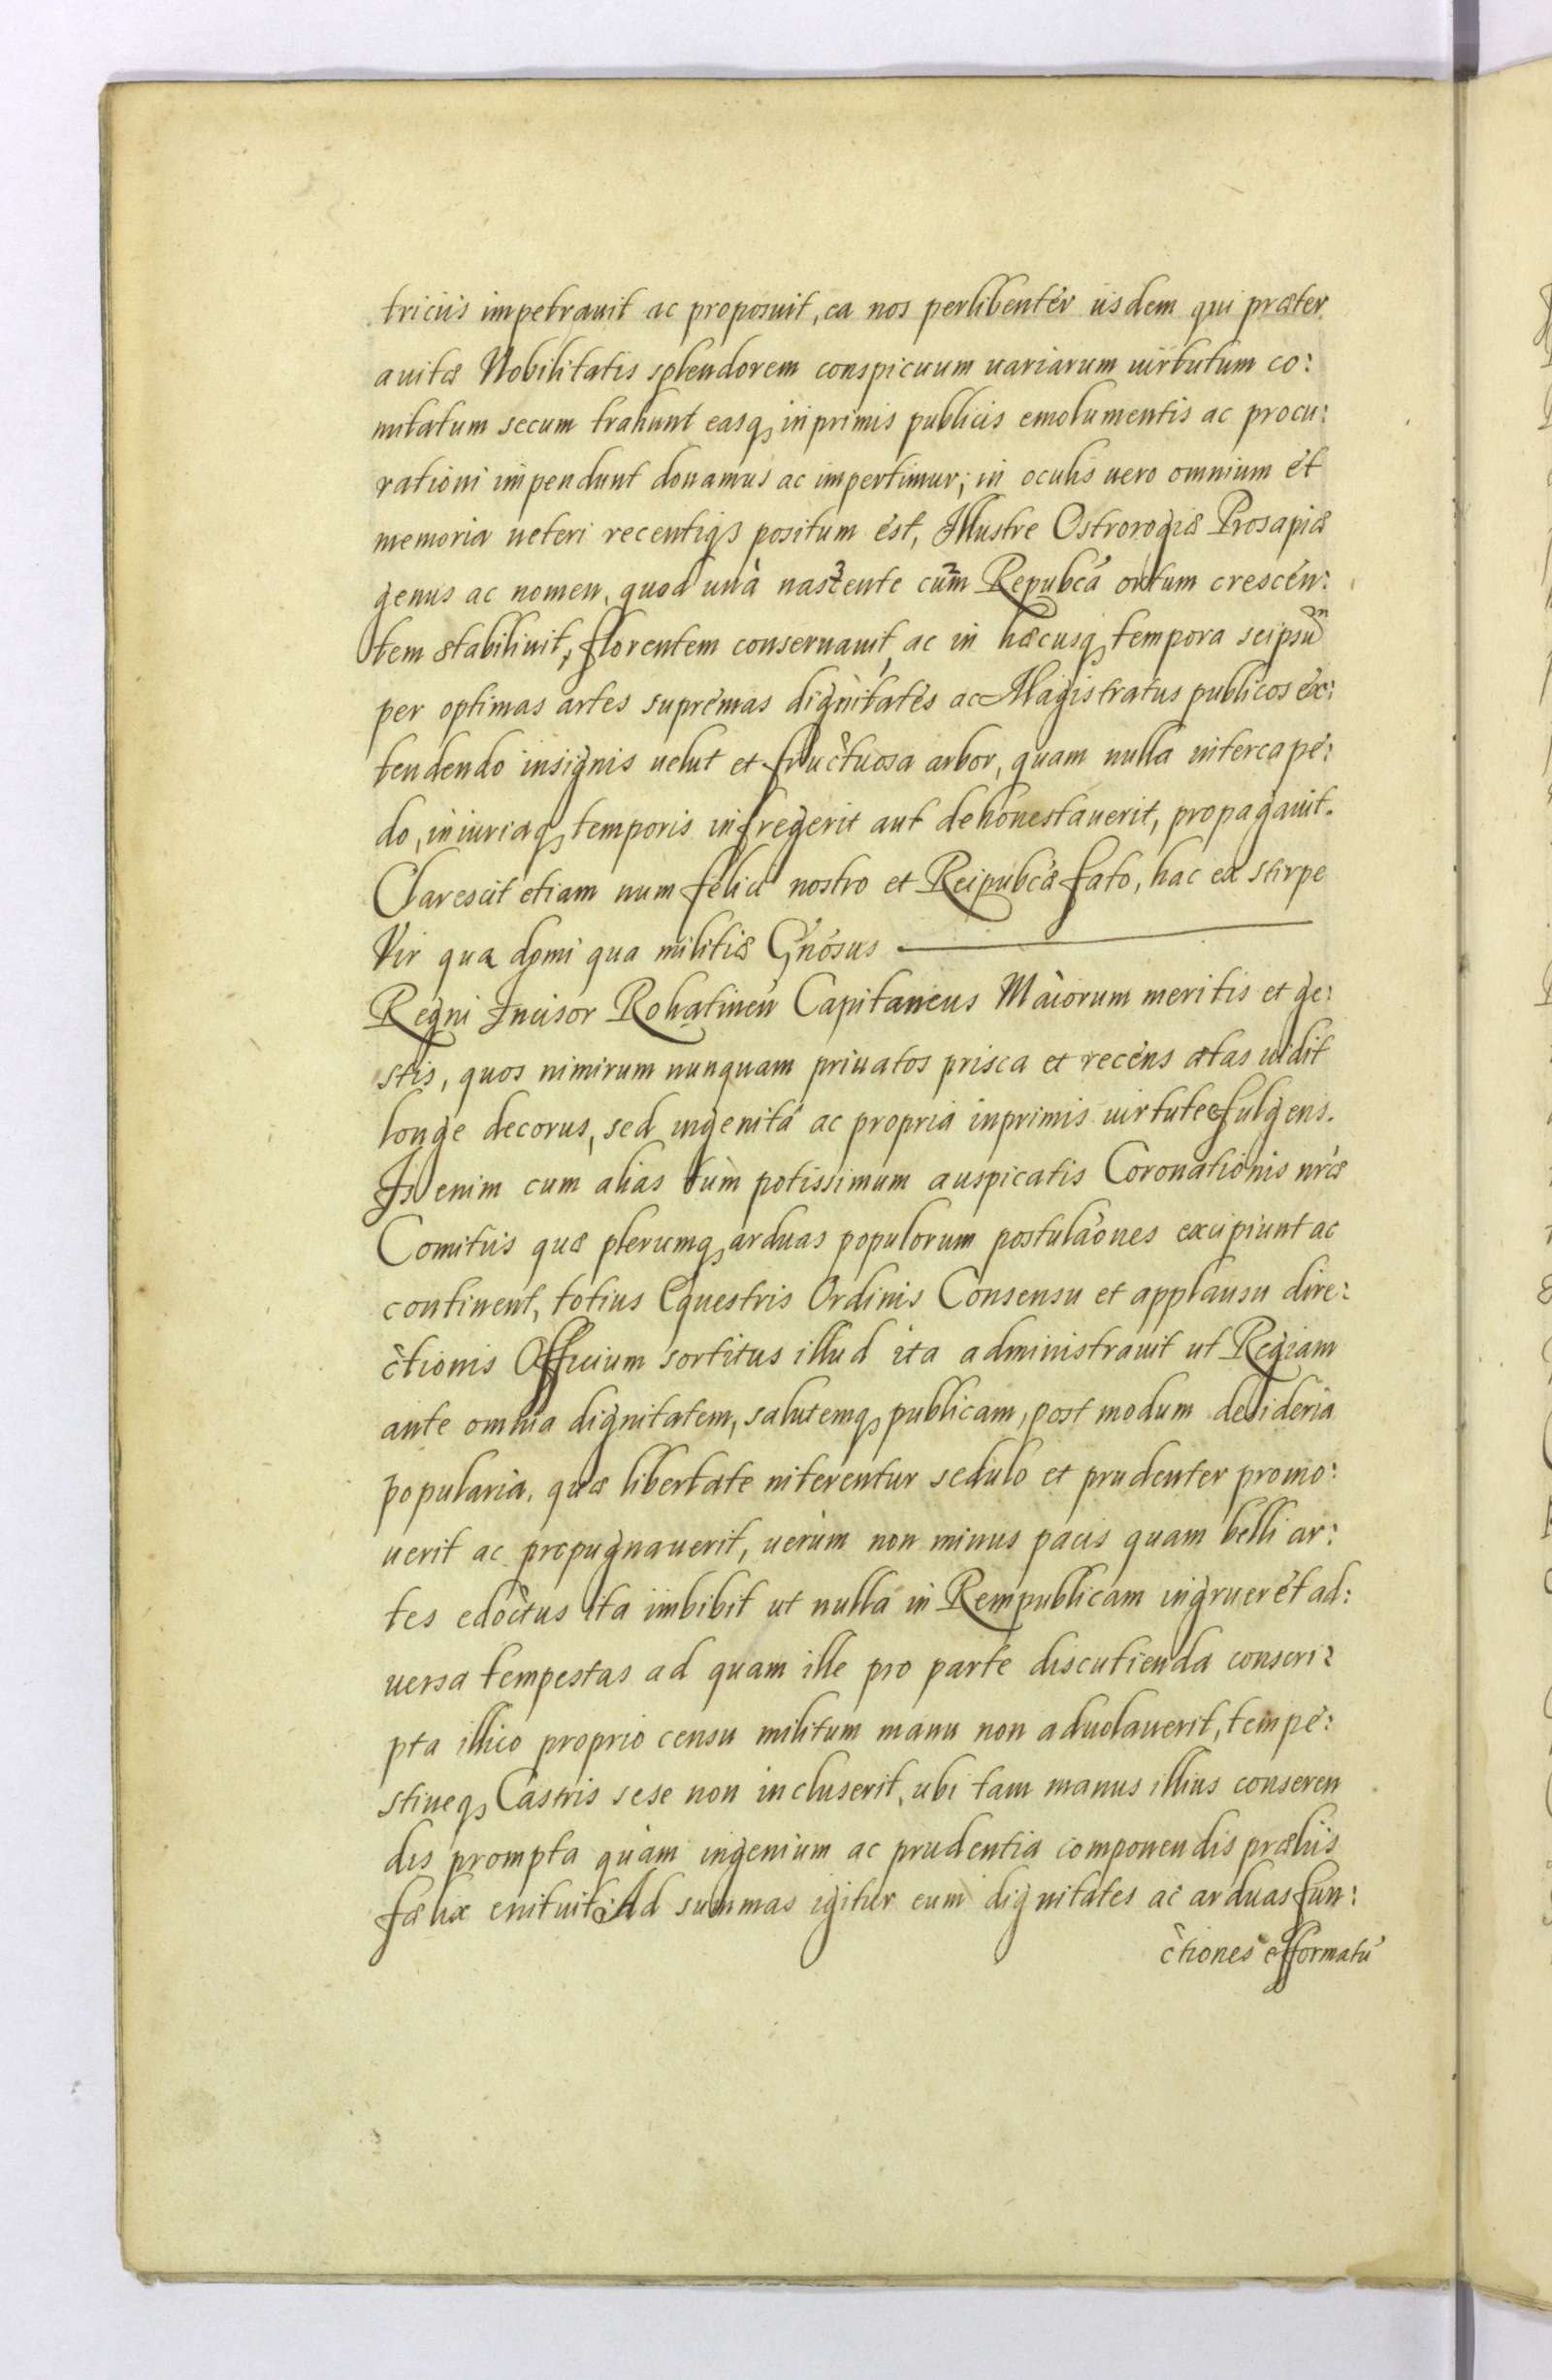 triciis impetrauit ac proposuit, ea nos perlibentér iisdem qui præter
auitæ Nobilitatis splendorem conspicuum uariarum uirtutum co:
mitatum secum trahunt easq; inprimis publicis emolumentis ac procu:
rationi impendunt donamus ac impertimur; in oculis uero omnium ét
memoria ueteri recentiq; positum ést, Illustre Ostrorogiæ Prosapiæ
genus ac nomen, quod unà nascente cum Repubcá ortum crescén:
tem stabiliuit, florentem conseruauit, ac in hæcusq; tempora seipsũ
per optimas artes suprémas dignitatés ac Magistratus publicos éx:
tendendo insignis uelut et fructuosa arbor, quam nulla intercapé:
do, iniuriaq; temporis infregerit aut dehonestauerit, propagauit.
Clarescit etiam num félici nostro et Reipubcæ fato, hac ex stirpe
Vir qua domi qua militiæ Gńosus
Regni Incisor Rohatineń Capitaneus Màiorum meritis et ge:
stis, quos nimirum nunquam priuatos prisca et recéns ætas uidit
longe decorus, sed ingenitá ac propriá inprimis uirtute efulgens.
Is enim cum alias tùm potissimum auspicatis Coronationis nŕæ
Comitiis quæ plerumq; arduas populorum postulaónes excipiunt ac
continent, totius Equestris Ordinis Consensu et applausu dire:
ctionis Officium sortitus illud ita administrauit ut Regiam
ante omnia dignitatem, salutemq; publicam, post modum desideria
popularia, quæ libertate niterentur sedulo et prudenter promo:
uerit ac propugnauerit, uerùm non minus pacis quam belli ar:
tes edoctus ita imbibit ut nulla in Rempublicam ingrueret ad:
uersa tempestas ad quam ille pro parte discutienda conscri:
pta illico proprio censu militum manu non aduolauerit, tempé:
stiueq; Castris sese non incluserit, ubi tam manus illius conseren
dis prompta quàm ingenium ac prudentia componendis præliis
fælix enituit. Ad summas igitur eum dignitates ac arduas fun:
ctiones efformatú